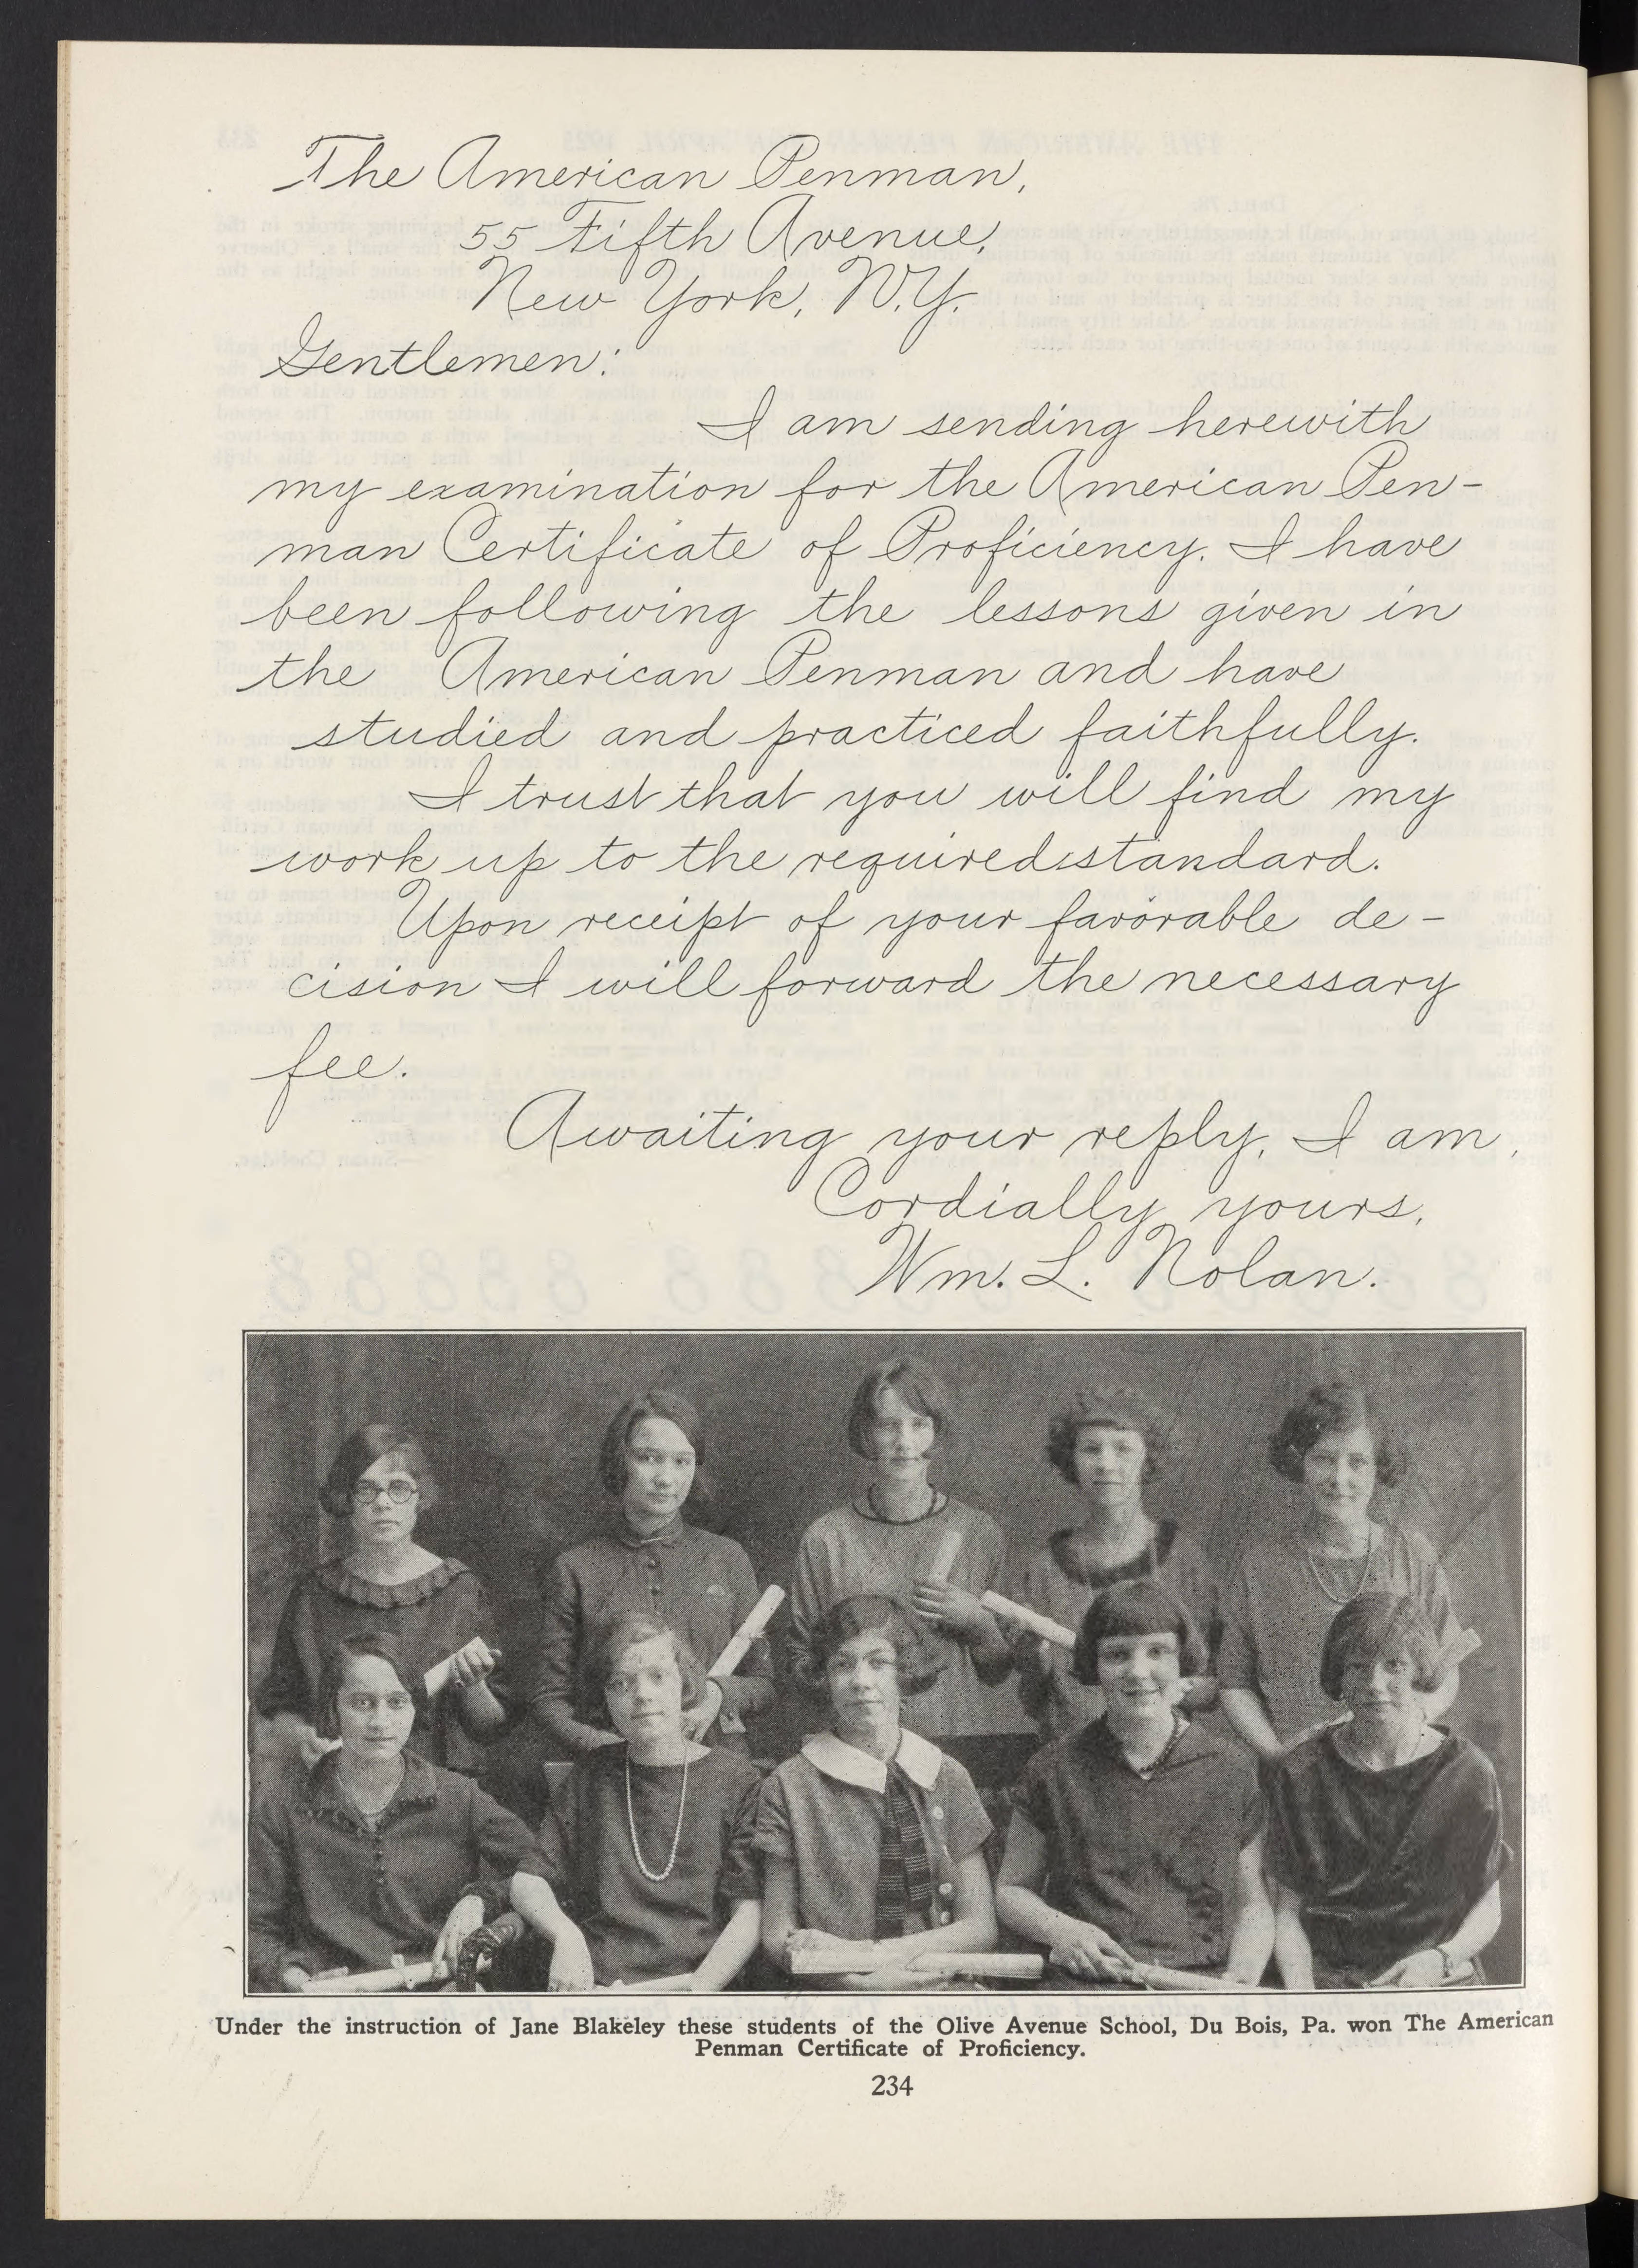 The American Penman,
55 Fifth Avenue,
New York, N.Y.
Gentlemen:
I am sending herewith
my examination for the American Pen-
man Certificate of Proficiency. I have
been following the lessons given in
the American Penman and have
studied and practiced faithfully.
I trust that you will find my
work up to the required standard.
Upon receipt of your favorable de-
cision I will forward the necessary
fee.
Awaiting your reply, I am,
Cordially yours,
Wm. L. Nolan.
Under the instruction of Jane Blakeley these students of the Olive Avenue School, Du Bois, Pa. won The American
Penman Certificate of Proficiency.
234